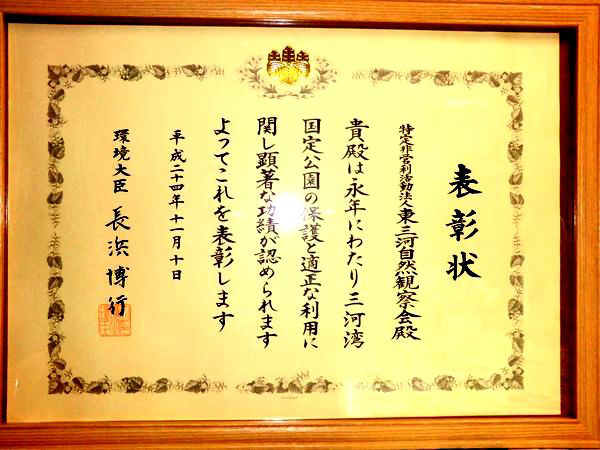 表彰状
特定非営利活動法人東三河自然観察会殿
貴殿は永年にわたり三河湾
国定公園の保護と適正な利用に
関し顕著な功績が認められます
よってこれを表彰します
平成二十四年十一月十日
環境大臣 長浜博行